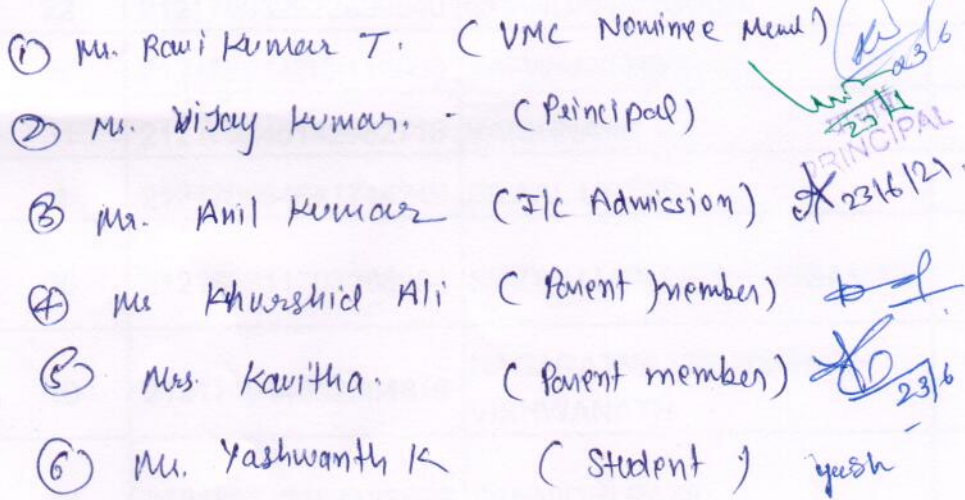 ① Mr. Ravi Kumar T. ( VMC Nominee Memb) 23/6
② Mr. Vijay Kumar. - (Principal) 23/1
PRINCIPAL
③ Mr. Anil Kumar (I/C Admission) 23/6/21.
④ Mr Khurshid Ali ( Parent member)
⑤ Mrs. Kavitha. ( Parent member) 23/6
⑥ Mr. Yashwanth K ( Student ) yash